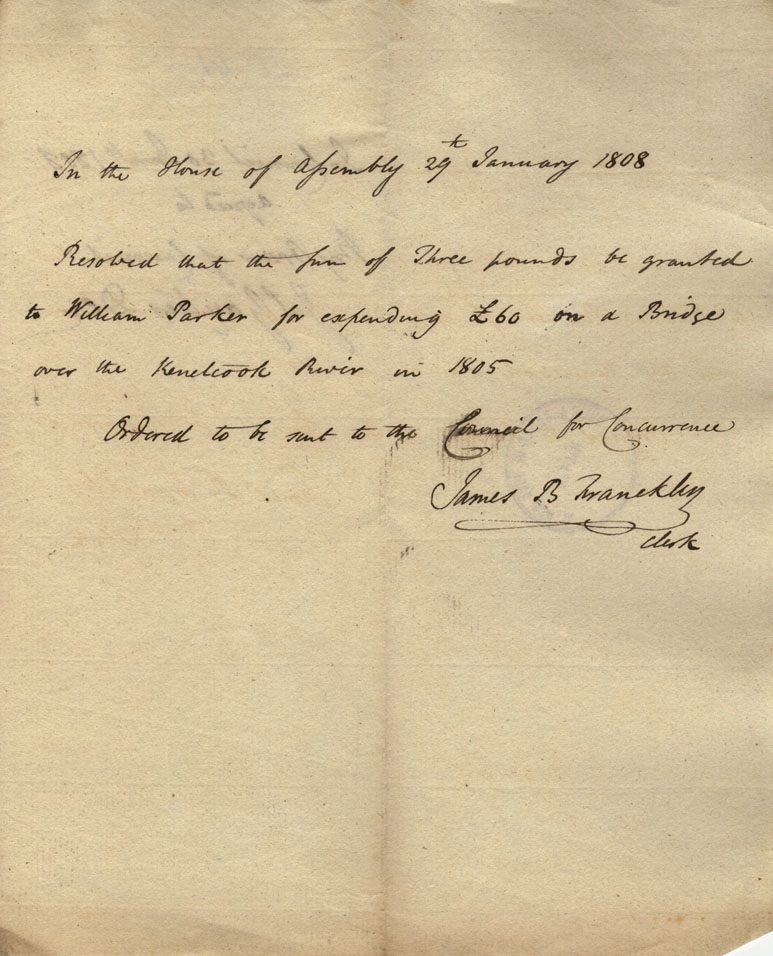 In the House of Assembly 29th January 1808
Resolved that the sum of Three pounds be granted
to William Parker for expending £60 on a Bridge
over the Kenetcook River in 1805
Ordered to be sent to the Council for Concurrence
James B Franckley
Clerk